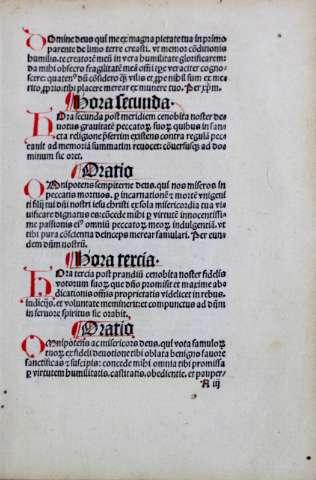 Domine deus qui me ex magna pietate tua in primo
parente de limo terre creasti. vt memor cōditionis
humilis te creatorem meū in vera humilitate glorificarem:
da mihi obsecro fragilitatē meā
merear ex munere tuo. Per xp̄m.
Hora secunda.
Hora secunda post meridiem cenobita noster de
uotus grauitatē peccatoꝝ suoꝝ quibus in san
cta religione p̄sertim existens contra regulā pecca
uit ad memoriā summatim reuocet: cōuersusqꝫ ad do
minum sic oret.
Oratio
Omnipotens sempiterne deus. qui nos miseros in
peccatis mortuos. per incarnationē et mortē vnigeni
ti filij tui dn̄i nostri iesu christi ex sola misericordia tua vi
uificare dignatus es: cōcede mihi per virtutē innocentissi
me passionis ei⁹ omniū peccatoꝝ meoꝝ indulgentiā. vt
tibi pura cōscientia deinceps merear famulari. Per eun
dem dn̄m nostrū.
Hora tercia.
Hora tercia post prandiū cenobita noster fidelis
votorum suoꝝ que dn̄o promisit et maxime ab
dicationis omnis proprietatis videlicet in rebus.
iudicijs. et voluntate meminerit: et compunctus ad dn̄m
in feruore spiritus sic orabit.
Oratio
Omnipotēs ac misericors deus. qui vota famulo
tuoꝝ ex fideli deuotione tibi oblata benigno fauore
sanctificas et suscipis: concede mihi omnia tibi promissa
per virtutem humilitatis. castitatis. obedientie. et pauper-
A iij